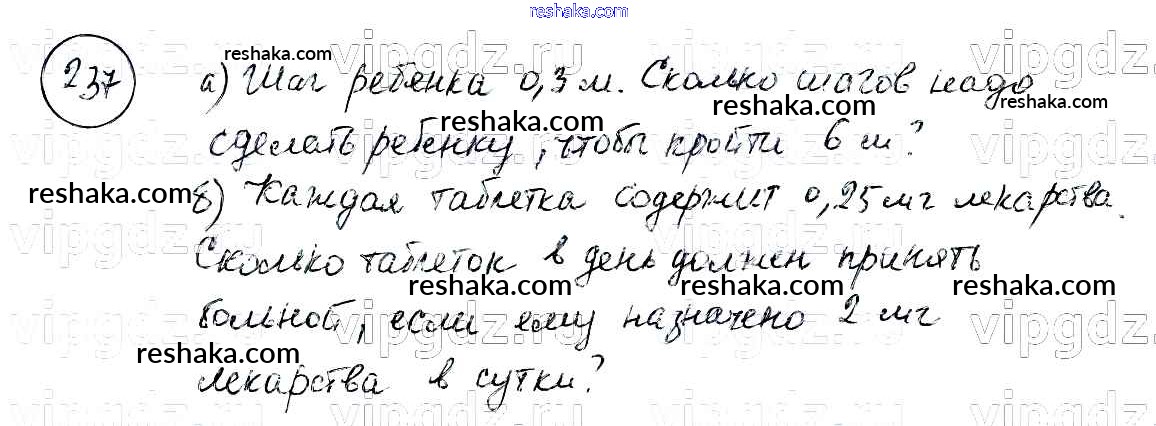 reshaka.com
237
а) Шаг ребёнка 0,3 м. Сколько шагов надо
сделать ребёнку, чтобы пройти 6 м?
б) Каждая таблетка содержит 0,25 мг лекарства.
Сколько таблеток в день должен принять
больной, если ему назначено 2 мг
лекарства в сутки?
reshaka.com
reshaka.com
reshaka.com
reshaka.com
reshaka.com
reshaka.com
reshaka.com
reshaka.com
reshaka.com
reshaka.com
reshaka.com
vipgdz.ru
vipgdz.ru
vipgdz.ru